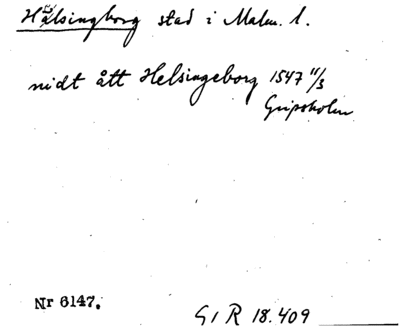 Hälsingborg stad i Malm. l.
nidt ått Helsingeborg 1547 11/3
Gripsholm
Nr 6147.
G I R 18.409